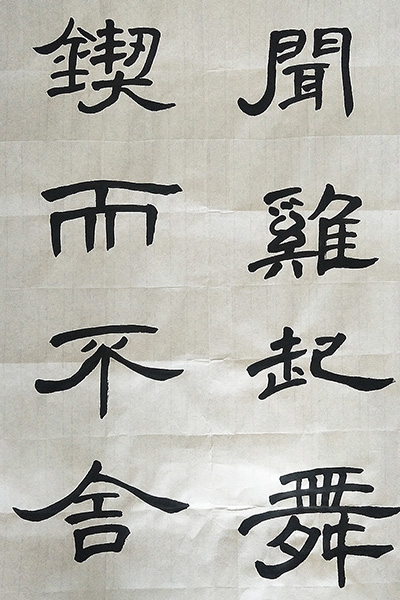 聞雞起舞
鍥而不舍